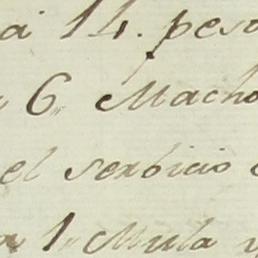 a 14. peso
6 Macho
el serbicio
1 Mula y